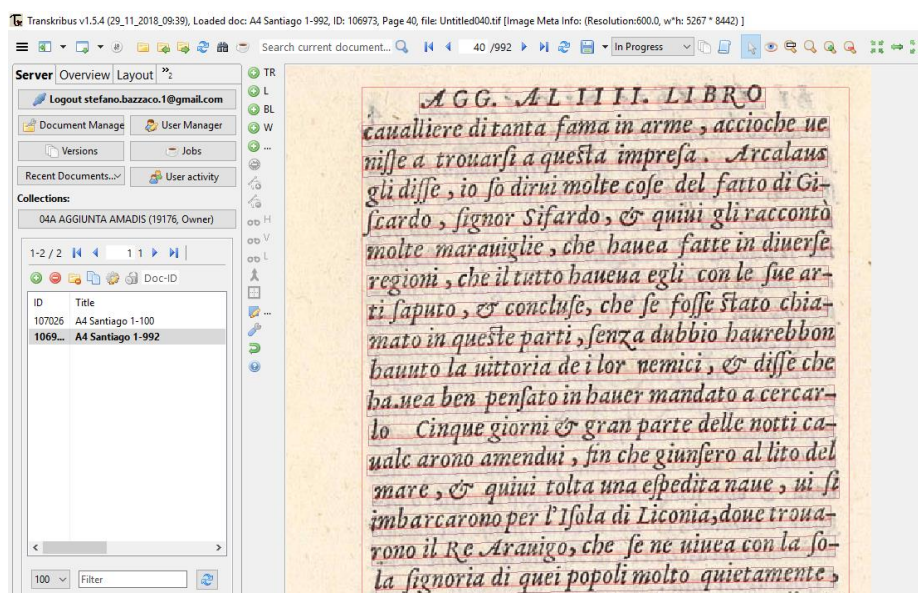 Transkribus v1.5.4 (29_11_2018_09:39), Loaded doc: A4 Santiago 1-992, ID: 106973, Page 40, file: Untitled040.tif [Image Meta Info: (Resolution:600.0, w*h: 5267 * 8442) ]
Search current document...
40 /992
In Progress
Server Overview Layout »2
Logout stefano.bazzaco.1@gmail.com
Document Manage
User Manager
Versions
Jobs
Recent Documents...
User activity
Collections:
04A AGGIUNTA AMADIS (19176, Owner)
1-2 / 2
1 1
Doc-ID
ID Title
107026 A4 Santiago 1-100
1069... A4 Santiago 1-992
100
Filter
TR
L
BL
W
...
H
V
L
...
AGG. AL IIII. LIBRO
caualliere di tanta fama in arme , accioche ue
niſſe a trouarſi a queſta impreſa . Arcalaus
gli diſſe , io ſo dirui molte coſe del fatto di Gi-
ſcardo , ſignor Sifardo , & quiui gli raccontò
molte marauiglie , che hauea fatte in diuerſe
regioni , che il tutto haueua egli con le ſue ar-
ti ſaputo , & concluſe, che ſe foſſe ſtato chia-
mato in queſte parti , ſenza dubbio haurebbon
hauuto la uittoria de i lor nemici , & diſſe che
ha.uea ben penſato in hauer mandato a cercar-
lo Cinque giorni & gran parte delle notti ca-
ualc arono amendui , fin che giunſero al lito del
mare , & quiui tolta una eſpedita naue , ui ſi
imbarcarono per l'Iſola di Liconia,doue troua-
rono il Re Arauigo, che ſe ne uiuea con la ſo-
la ſignoria di quei popoli molto quietamente ,